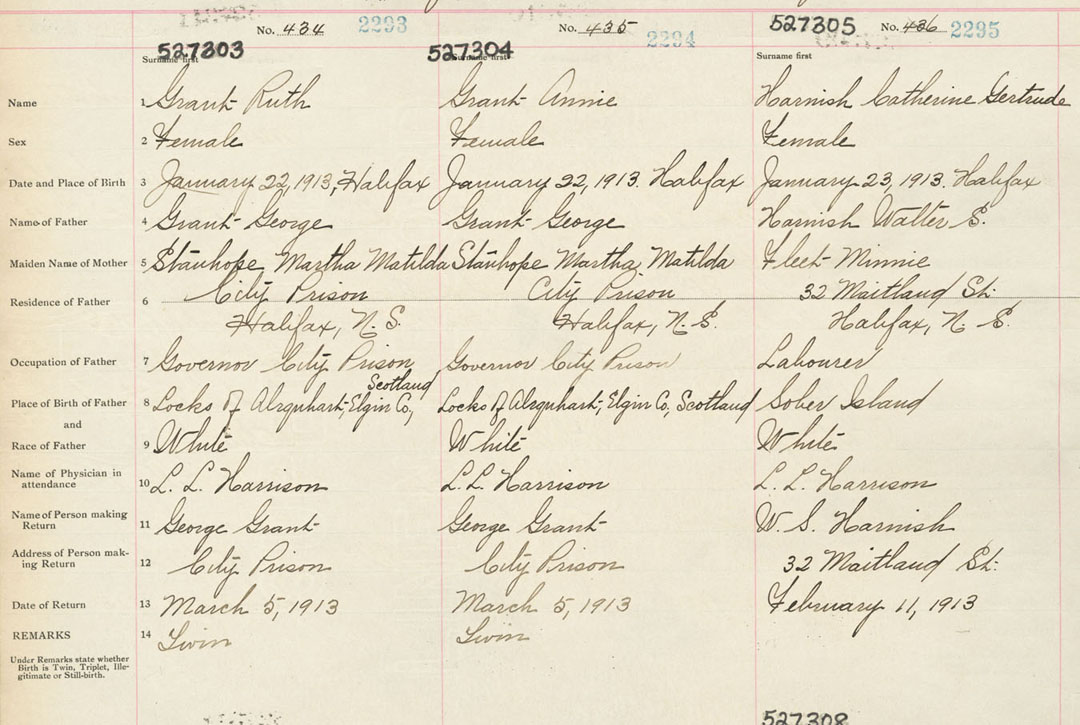 No. 434 2293 No. 435 2294 527305 No. 436 2295
527303 527304
Surname first Surname first Surname first
Name 1 Grant Ruth Grant Annie Harnish Catherine Gertrude
Sex 2 Female Female Female
Date and Place of Birth 3 January 22, 1913, Halifax January 22, 1913. Halifax January 23, 1913. Halifax
Name of Father 4 Grant George Grant George Harnish Walter S.
Maiden Name of Mother 5 Stanhope Martha Matilda Stanhope Martha Matilda Fleet Minnie
Residence of Father 6 City Prison City Prison 32 Maitland St.
Halifax, N. S. Halifax, N. S. Halifax, N. S.
Occupation of Father 7 Governor City Prison Governor City Prison Labourer
Scotland
Place of Birth of Father 8 Locks of Alrquhart, Elgin Co, Locks of Alrquhart, Elgin Co, Scotland Sober Island
and
Race of Father 9 White White White
Name of Physician in
attendance 10 L. L. Harrison L. L. Harrison L. L. Harrison
Name of Person making
Return 11 George Grant George Grant W. S. Harnish
Address of Person mak-
ing Return 12 City Prison City Prison 32 Maitland St.
Date of Return 13 March 5, 1913 March 5, 1913 February 11, 1913
REMARKS 14 Twin Twin
Under Remarks state whether
Birth is Twin, Triplet, Ille-
gitimate or Still-birth.
527308